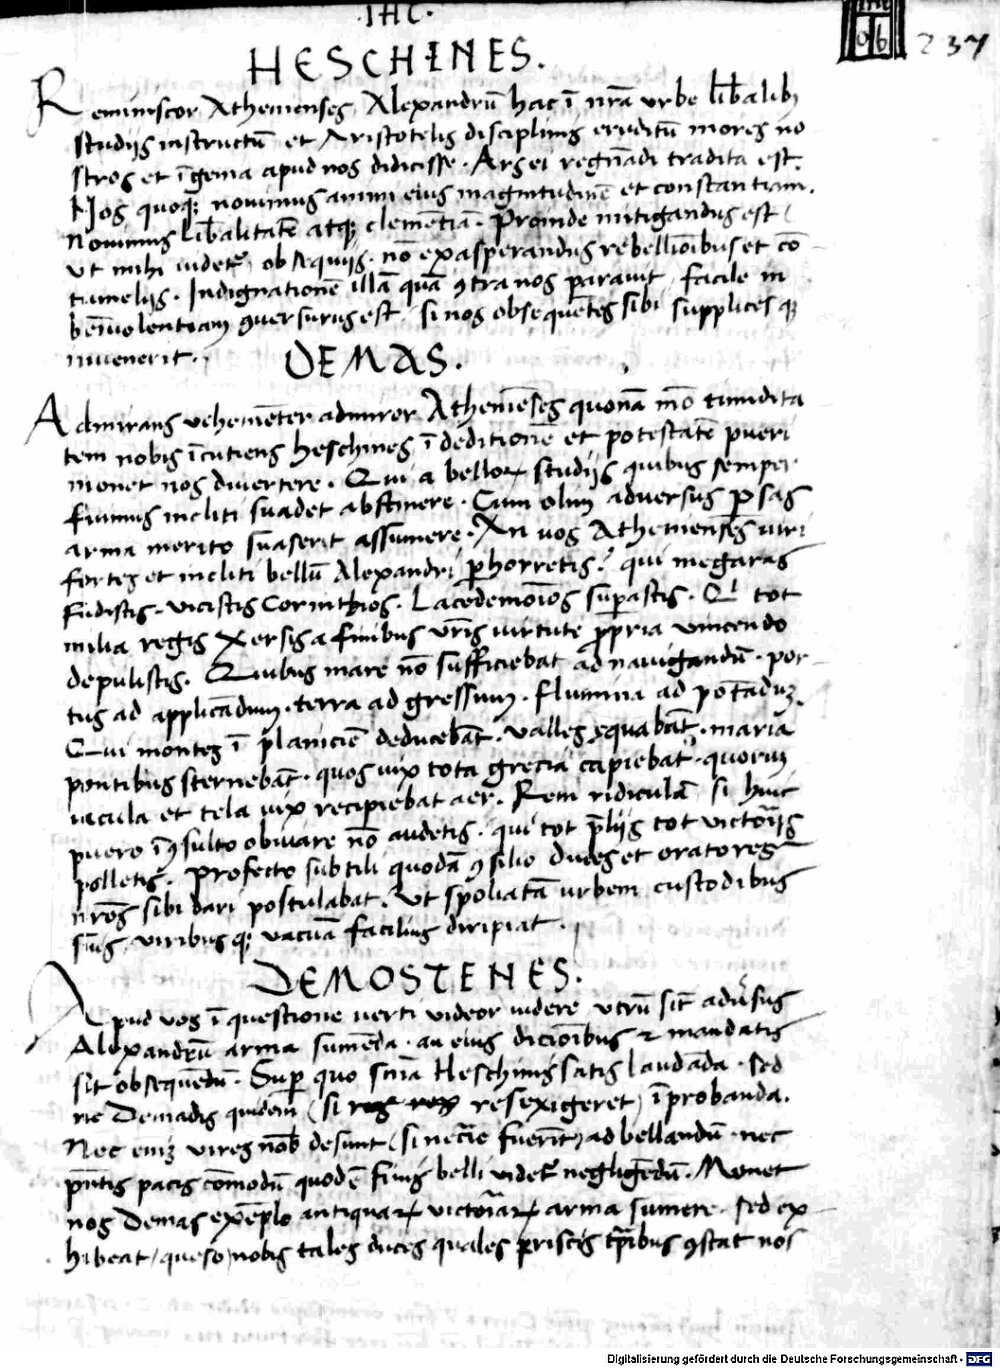 ·IHC·
237
HESCHINES.
Reminiscor Athenienses Alexandrū hac ī nr̄a urbe lib̄alibꝫ
studijs instructū et Aristotelis disciplinis eruditū mores no
stros et īgenia apud nos didicisse. Ars ei regnādi tradita est.
Nos quoqꝫ novimus animi eius magnitudinē et constantiam.
Novimus lib̄alitatē atqꝫ clemētiā. Proinde mitigandus est (
ut mihi videt᷑) obsequijs. nō exasperandus rebelliōibus et cō
tumelijs. Indignationē illā quā ꝯtra nos paravit facile in
benivolentiam ꝯversurus est, si nos obsequētes sibi supplices qꝫ
invenerit.
DEMAS.
Admirans vehemēter admiror Atheniēses quonā mō timidita
tem nobis īcutiens heschines ī deditionē et potestatē pueri
monet nos divertere. Qui a belloꝝ studijs quibus semper
fuimus incliti suadet abstinere. Cum olim adversus ꝑsas
arma merito suaserit assumere. An vos Athenienses viri
fortes et incliti bellū Alexandri ꝑhorretis? qui megaras
fudistis. vicistis Corinthios. Lacedemoīos suꝑastis. Qi tot
milia regis Xersis a finibus vr̄is virtute ꝓpria vincendo
depulistis. Quibus mare nō sufficiebat ad navigandū. por
tus ad applicādum. terra ad gressum. flumina ad potāduꝫ.
Qui montes ī planiciē deducebāt. valles equabāt. maria
pontibus sternebāt. quos vix tota grecia capiebat. quorum
iacula et tela vix recipiebat aer. Rem ridiculā si huic
puero īꝯsulto obviare nō audetis. qui tot p̄lijs tot victorijs
polletis. Profecto subtili quodā ꝯsilio duces et oratores
nr̄os sibi dari postulabat. Ut spoliatā urbem custodibus
suis viribus qꝫ vacuā facilius diripiat.
DEMOSTENES.
Apud vos ī questione verti videor videre utrū sit adv̄sus
Alexandrū arma sumēda. an eius dicioībus et mandatis
sit obsequēdū. Suꝑ quo sn̄ia Heschinis satis laudāda. sed
nec Demadis quidem (si res exigeret) īprobanda.
Nec eniꝫ vires nob̄ desunt (si nec̄ie fuerīt) ad bellandū. nec
pn̄tis pacis cōmodū quod ē finis belli videt᷑ negligēdū. Monet
nos Demas exēplo antiquaꝝ victoriaꝝ arma sumere. sed ex
hibeat (queso) nobis tales duces quales priscis tꝑibus ꝯstat nos
Digitalisierung gefördert durch die Deutsche Forschungsgemeinschaft · DFG